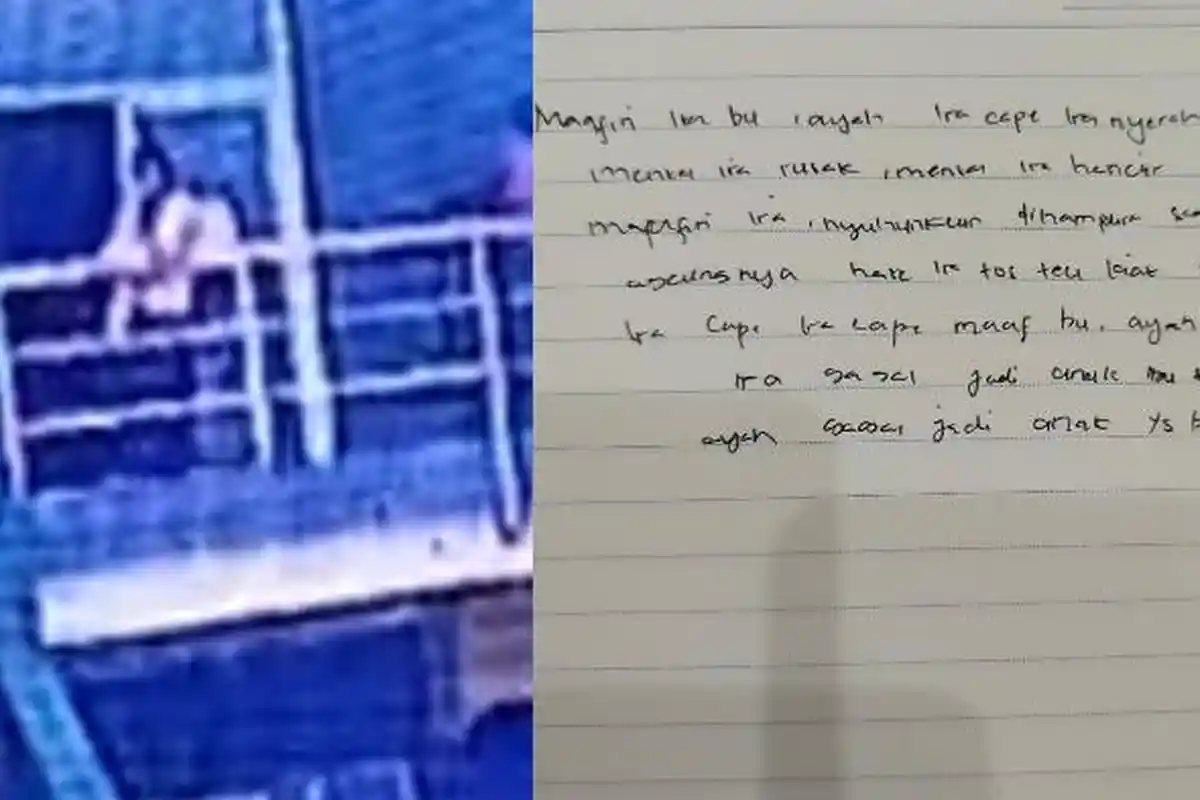 Ira bu, ayah Ira cape Ira nyerah
mental ira rusak, mental ira hancur
Ira, nyuhunkeun dihampura
hate Ira tos teu kiat
Ira Cape Ira cape maaf bu, ayah
ira gagal jadi anak
ayah gagal jadi anak yg